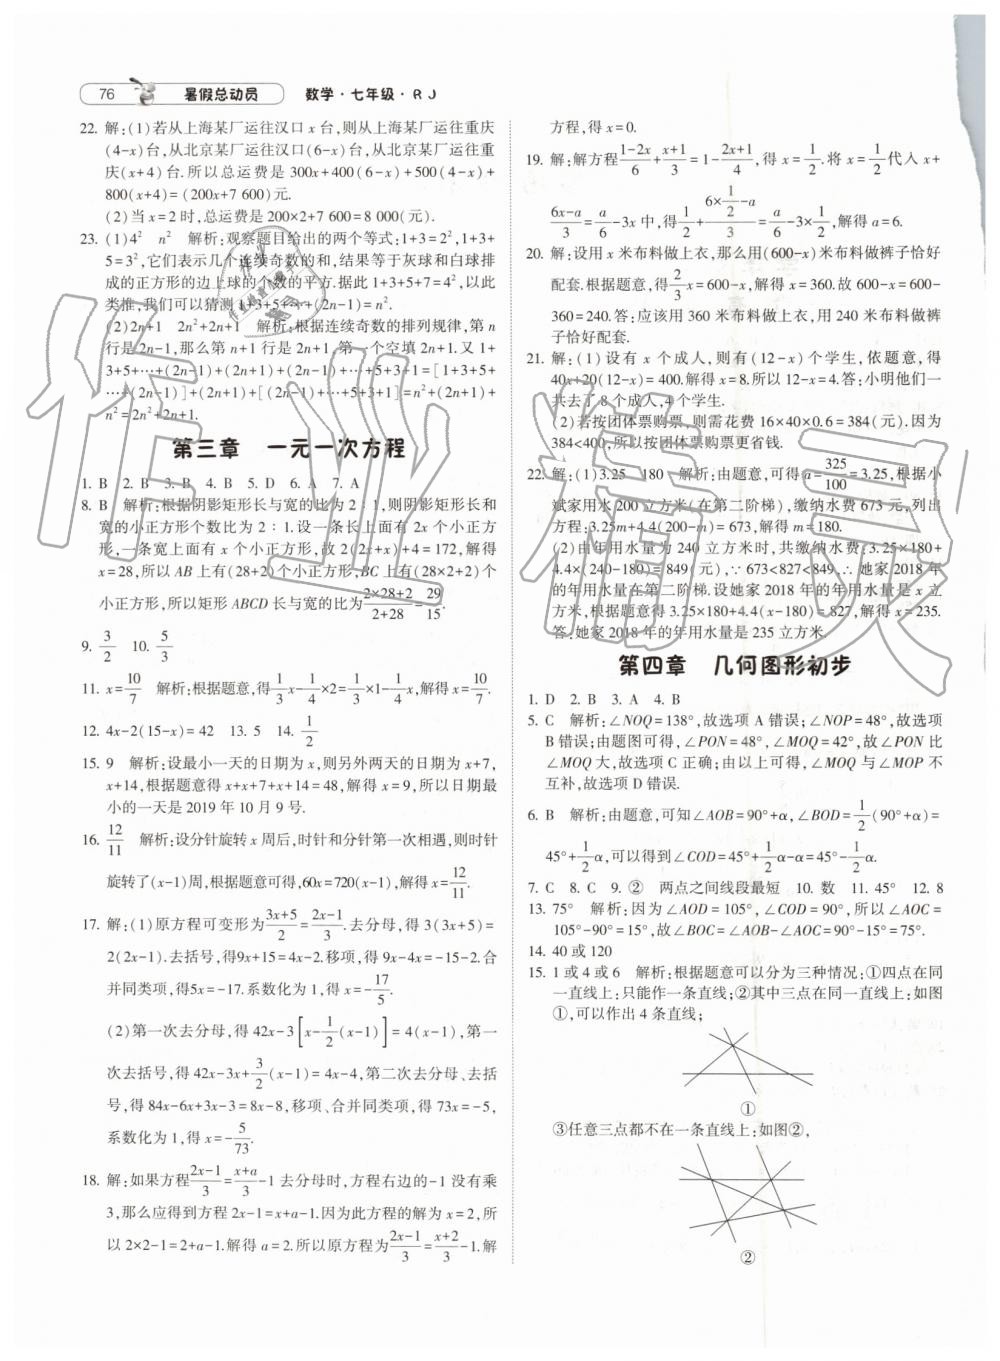 76 暑假总动员 数学·七年级·RJ
22. 解:(1)若从上海某厂运往汉口 x 台,则从上海某厂运往重庆
(4-x)台,从北京某厂运往汉口(6-x)台,从北京某厂运往重
庆(x+4)台.所以总运费是 300x+400(6-x)+500(4-x)+
800(x+4)=(200x+7 600)元.
(2)当 x=2 时,总运费是 200×2+7 600=8 000(元).
23. (1)4² n² 解析:观察题目给出的两个等式:1+3=2²,1+3+
5=3²,它们表示几个连续奇数的和,结果等于灰球和白球排
成的正方形的边上球的个数的平方.据此 1+3+5+7=4²,以此
类推,我们可以猜测 1+3+5+…+(2n-1)=n².
(2)2n+1 2n²+2n+1 解析:根据连续奇数的排列规律,第 n
行是 2n-1,那么第 n+1 行是 2n+1,第一个空填 2n+1.又 1+
3+5+…+(2n-1)+(2n+1)+(2n-1)+…+5+3+1=[1+3+5+
…+(2n-1)]+(2n+1)+[(2n-1)+…+5+3+1]=n²+(2n+1)+
n²=2n²+2n+1.
第三章 一元一次方程
1. B 2. B 3. B 4. B 5. D 6. A 7. A
8. B 解析:根据阴影矩形长与宽的比为 2∶1,则阴影矩形长和
宽的小正方形个数比为 2∶1.设一条长上面有 2x 个小正方
形,一条宽上面有 x 个小正方形,故 2(2x+x)+4=172,解得
x=28,所以 AB 上有(28+2)个小正方形,BC 上有(28×2+2)个
小正方形,所以矩形 ABCD 长与宽的比为(2×28+2)/(2+28)=29/15.
9. 3/2 10. 5/3
11. x=10/7 解析:根据题意,得1/3x-1/4×2=1/3×1-1/4x,解得 x=10/7.
12. 4x-2(15-x)=42 13. 5 14. 1/2
15. 9 解析:设最小一天的日期为 x,则另外两天的日期为 x+7,
x+14,根据题意得 x+x+7+x+14=48,解得 x=9,所以日期最
小的一天是 2019 年 10 月 9 号.
16. 12/11 解析:设分针旋转 x 周后,时针和分针第一次相遇,则时针
旋转了(x-1)周,根据题意可得,60x=720(x-1),解得 x=12/11.
17. 解:(1)原方程可变形为(3x+5)/2=(2x-1)/3.去分母,得 3(3x+5)=
2(2x-1).去括号,得9x+15=4x-2.移项,得9x-4x=-15-2.合
并同类项,得5x=-17.系数化为 1,得 x=-17/5.
(2)第一次去分母,得 42x-3[x-1/2(x-1)]=4(x-1),第一
次去括号,得 42x-3x+3/2(x-1)=4x-4,第二次去分母、去括
号,得 84x-6x+3x-3=8x-8,移项、合并同类项,得 73x=-5,
系数化为 1,得 x=-5/73.
18. 解:如果方程(2x-1)/3=(x+a)/3-1 去分母时,方程右边的-1 没有乘
3,那么应得到方程 2x-1=x+a-1.因为此方程的解为 x=2,所
以 2×2-1=2+a-1.解得 a=2.所以原方程为(2x-1)/3=(x+2)/3-1.解
方程,得 x=0.
19. 解:解方程(1-2x)/6+(x+1)/3=1-(2x+1)/4,得 x=1/2.将 x=1/2代入 x+
(6x-a)/3=a/6-3x 中,得1/2+(6×1/2-a)/3=a/6-3×1/2,解得 a=6.
20. 解:设用 x 米布料做上衣,那么用(600-x)米布料做裤子恰好
配套.根据题意,得2/3x=600-x,解得 x=360.故 600-x=600-
360=240.答:应该用 360 米布料做上衣,用 240 米布料做裤
子恰好配套.
21. 解:(1)设有 x 个成人,则有(12-x)个学生,依题意,得
40x+20(12-x)=400.解得 x=8.所以 12-x=4.答:小明他们一
共去了 8 个成人,4 个学生.
(2)若按团体票购票,则需花费 16×40×0.6=384(元).因为
384<400,所以按团体票购票更省钱.
22. 解:(1)3.25 180 解析:由题意,可得 a=325/100=3.25,根据小
斌家用水 200 立方米(在第二阶梯),缴纳水费 673 元,列出
方程:3.25m+4.4(200-m)=673,解得 m=180.
(2)由年用水量为 240 立方米时,共缴纳水费:3.25×180+
4.4×(240-180)=849(元),∵673<827<849,∴她家 2018 年
的年用水量在第二阶梯.设她家 2018 年的年用水量是 x 立
方米,根据题意得 3.25×180+4.4(x-180)=827,解得 x=235.
答:她家 2018 年的年用水量是 235 立方米.
第四章 几何图形初步
1. D 2. B 3. A 4. B
5. C 解析:∠NOQ=138°,故选项 A 错误;∠NOP=48°,故选项
B 错误;由题图可得,∠PON=48°,∠MOQ=42°,故∠PON 比
∠MOQ 大,故选项 C 正确;由以上可得,∠MOQ 与∠MOP 不
互补,故选项 D 错误.
6. B 解析:由题意,可知∠AOB=90°+α,∠BOD=1/2(90°+α)=
45°+1/2α,可以得到∠COD=45°+1/2α-α=45°-1/2α.
7. C 8. C 9. ② 两点之间线段最短 10. 数 11. 45° 12. 8
13. 75° 解析:因为∠AOD=105°,∠COD=90°,所以∠AOC=
105°-90°=15°,故∠BOC=∠AOB-∠AOC=90°-15°=75°.
14. 40 或 120
15. 1 或 4 或 6 解析:根据题意可以分为三种情况:①四点在同
一直线上:只能作一条直线;②其中三点在同一直线上:如图
①,可以作出 4 条直线;
①
③任意三点都不在一条直线上:如图②,
②
作业精灵